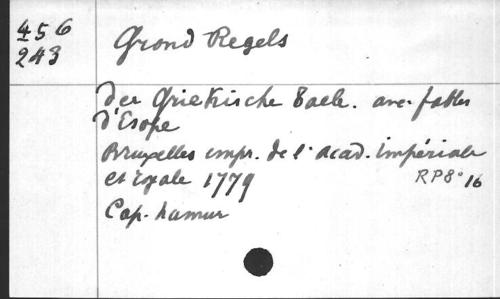 456
243
Grond Regels
der Griekische Taele. avec fables
d'Esope
Bruxelles impr. de l'acad. Impériale
et royale 1779
RP8° 16
Cap. hamur